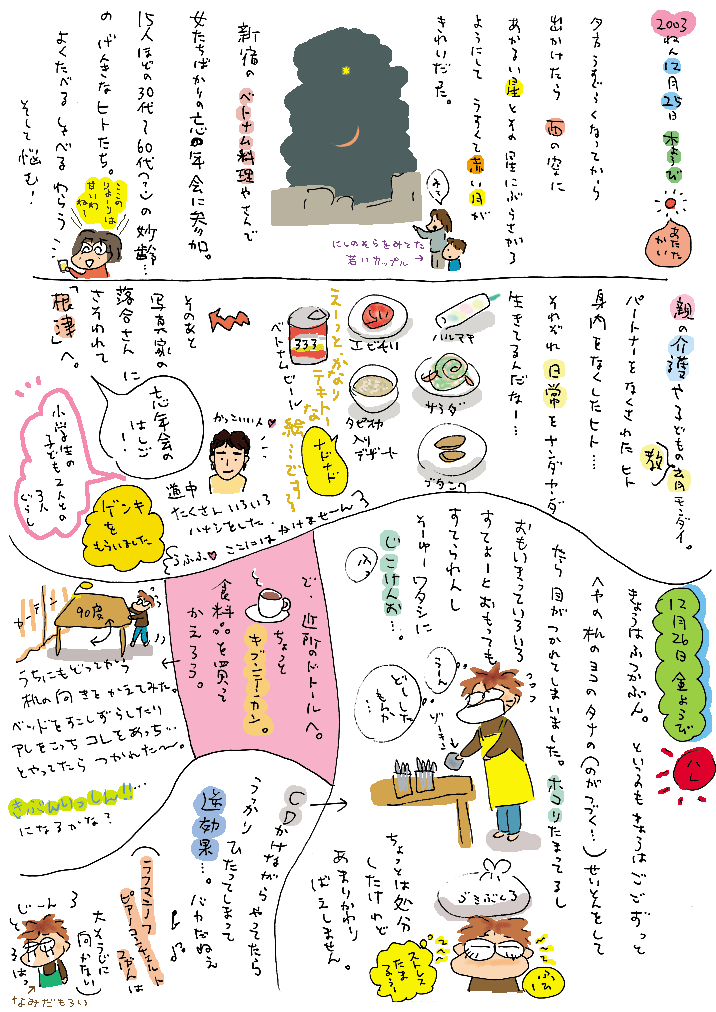 2003
ねん12月25日 木ようび
あたたかい
夕方うすぐらくなってから
出かけたら 西の空に
あかるい星とその星にぶらさがる
ようにして うすくて赤い月が
きれいだった。
みて
にしのそらをみてた
若いカップル→
新宿の ベトナム料理やさんで
女たちばかりの忘年会に参加。
15人ほどの30代〜60代(?)の妙齢…
の げんきなヒトたち。
よくたべる しゃべる わらう
そして 悩む!
ここの
りょーりは
甘いわ
ねー
親の介護や子どもの教育モンダイ。
パートナーをなくされたヒト
身内をなくしたヒト…
それぞれ 日常をナンダナンダ
生きてるんだなー…
ハルマキ
サラダ
ブタニク
エビモイ
タピオカ
入り
デザート
333
ベトナムビール
えーっと、かなり
テキトーな
絵…ですう
ナドナド
そのあと
写真家の
落合さんに
さそわれて
「根津」へ。
忘年会の
はしご
ー!
かっこいい人♥
道中
たくさん いろいろ
ハナシをした。
うふふ♥ ここには かけませーん
小学生の
子ども2人との
3人
ぐらし
ゲンキ
を
もらいました
12月26日 金ようび
ハレ
きょうはふつかぶん。 というのも きょうは ごごずっと
へやの 机のヨコの タナの(のがつづく…)せいとんをして
たら 目がつかれてしまいました。ホコリたまってるし
おもいきっていろいろ
すてよーとおもっても
すてられんし
そーゆーワタシに
じこけんお…。
ふっ
うーん
どーした
もんか
ゾーキン
ゴミぶくろ
ちょっとは処分
したけれど
あまりかわり
ばえしません。
ストレス
たま
るぅー
ふーっ
CDかけながら やってたら
うっかり ひたってしまって
逆効果…。バカだねぇ
ラフマニノフ
ピアノコンチェルト
2ばんは
大そうじに
向かない)
じーん
とろはっ
なみだもろい
で、近所のドトールへ。
ちょっと
キブンテンカン。
食料品を買って
かえろう。
カーテン
90度
うちにもどってから
机の向きをかえてみた。
ベッドをすこしずらしたり
アレをこっち コレをあっち…
とやってたら つかれた〜。
きぶんいっしん!!…
になるかな?